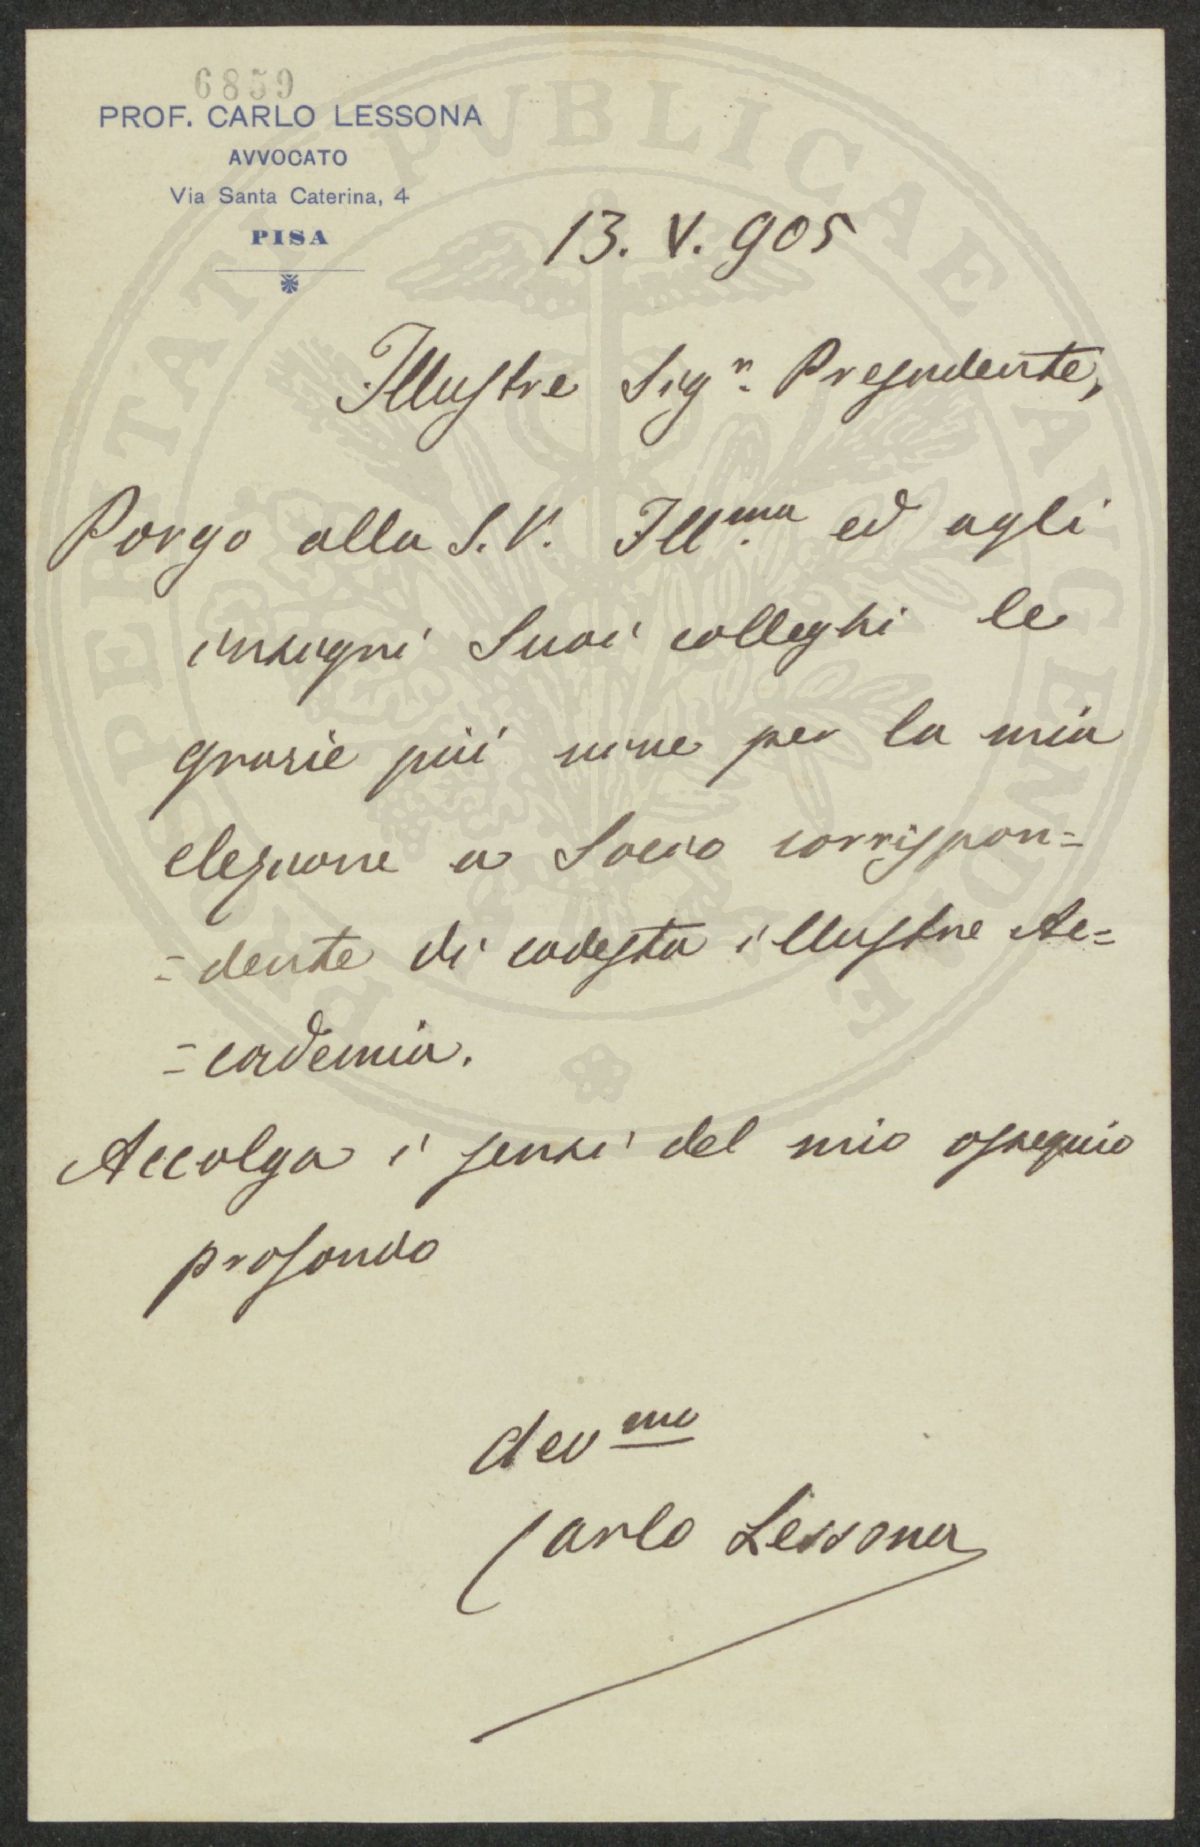 6859
PROF. CARLO LESSONA
AVVOCATO
Via Santa Caterina, 4
PISA
13. V. 905
Illustre Sigʳ. Presidente,
Porgo alla S. V. Illᵐᵃ ed agli
insigni Suoi colleghi le
grazie più vive per la mia
elezione a Socio corrispon=
=dente di codesta illustre Ac=
=cademia.
Accolga i sensi del mio ossequio
profondo
devᵐᵒ
Carlo Lessona
PROSPERITATI PUBLICAE AUGENDAE